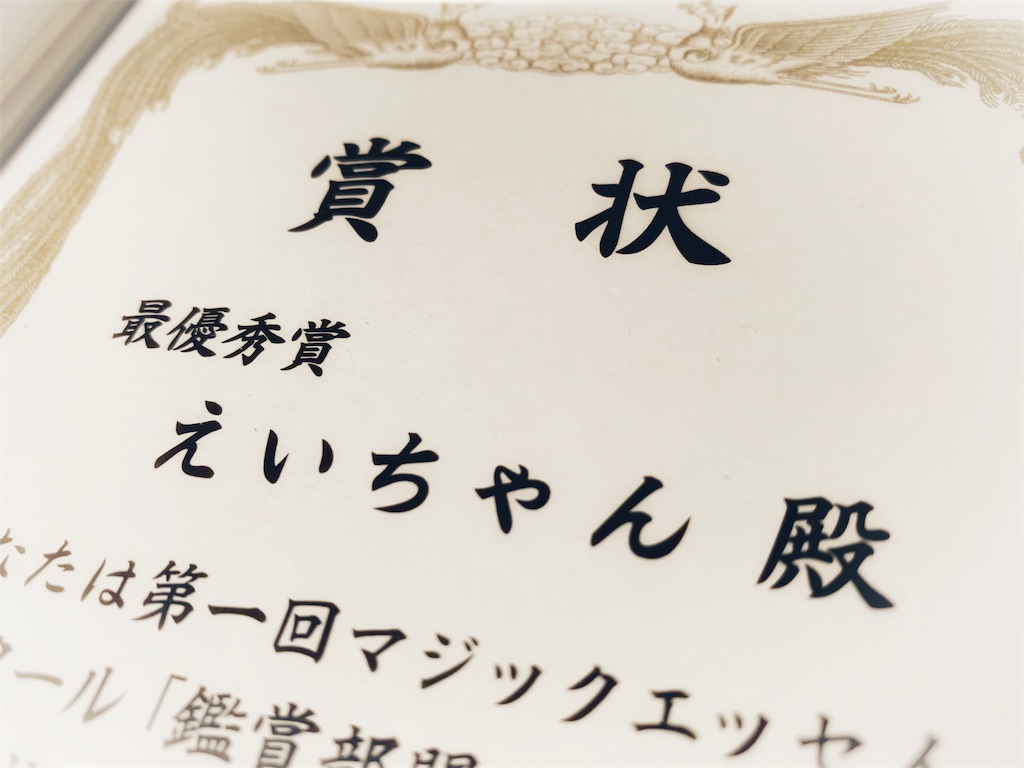 賞状
最優秀賞
えいちゃん 殿
なたは第一回マジックエッセ
ール「鑑賞部門